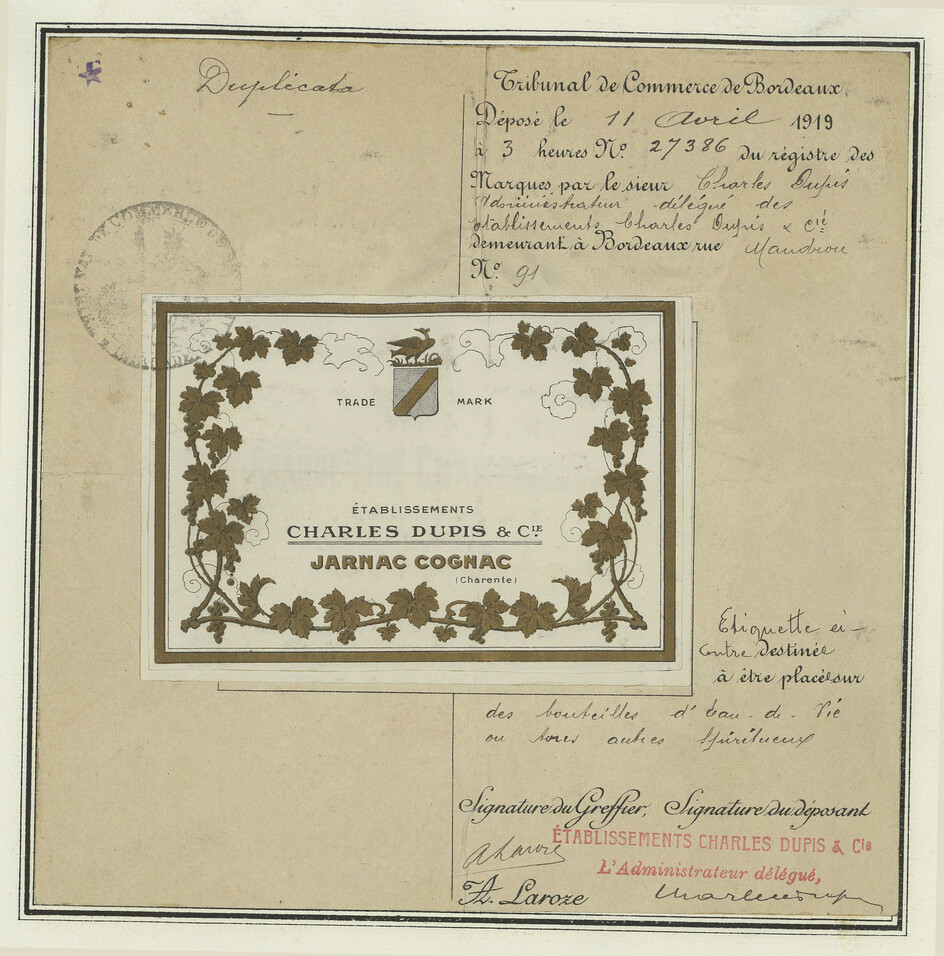 Duplicata
Tribunal de Commerce de Bordeaux
Déposé le 11 Avril 1919
à 3 heures No. 27386 du régistre des
Marques par le sieur Charles Dupis
Administrateur délégué des
Etablissements Charles Dupis & Cie
demeurant à Bordeaux rue Mandron
No. 91
TRADE MARK
ÉTABLISSEMENTS
CHARLES DUPIS & CIE
JARNAC COGNAC
(Charente)
Etiquette ci-
contre Destinée
à être placée sur
des bouteilles d'Eau-de-Vie
ou tous autres Spiritueux
Signature du Greffier, Signature du déposant
ÉTABLISSEMENTS CHARLES DUPIS & Cie
L'Administrateur délégué,
A. Laroze